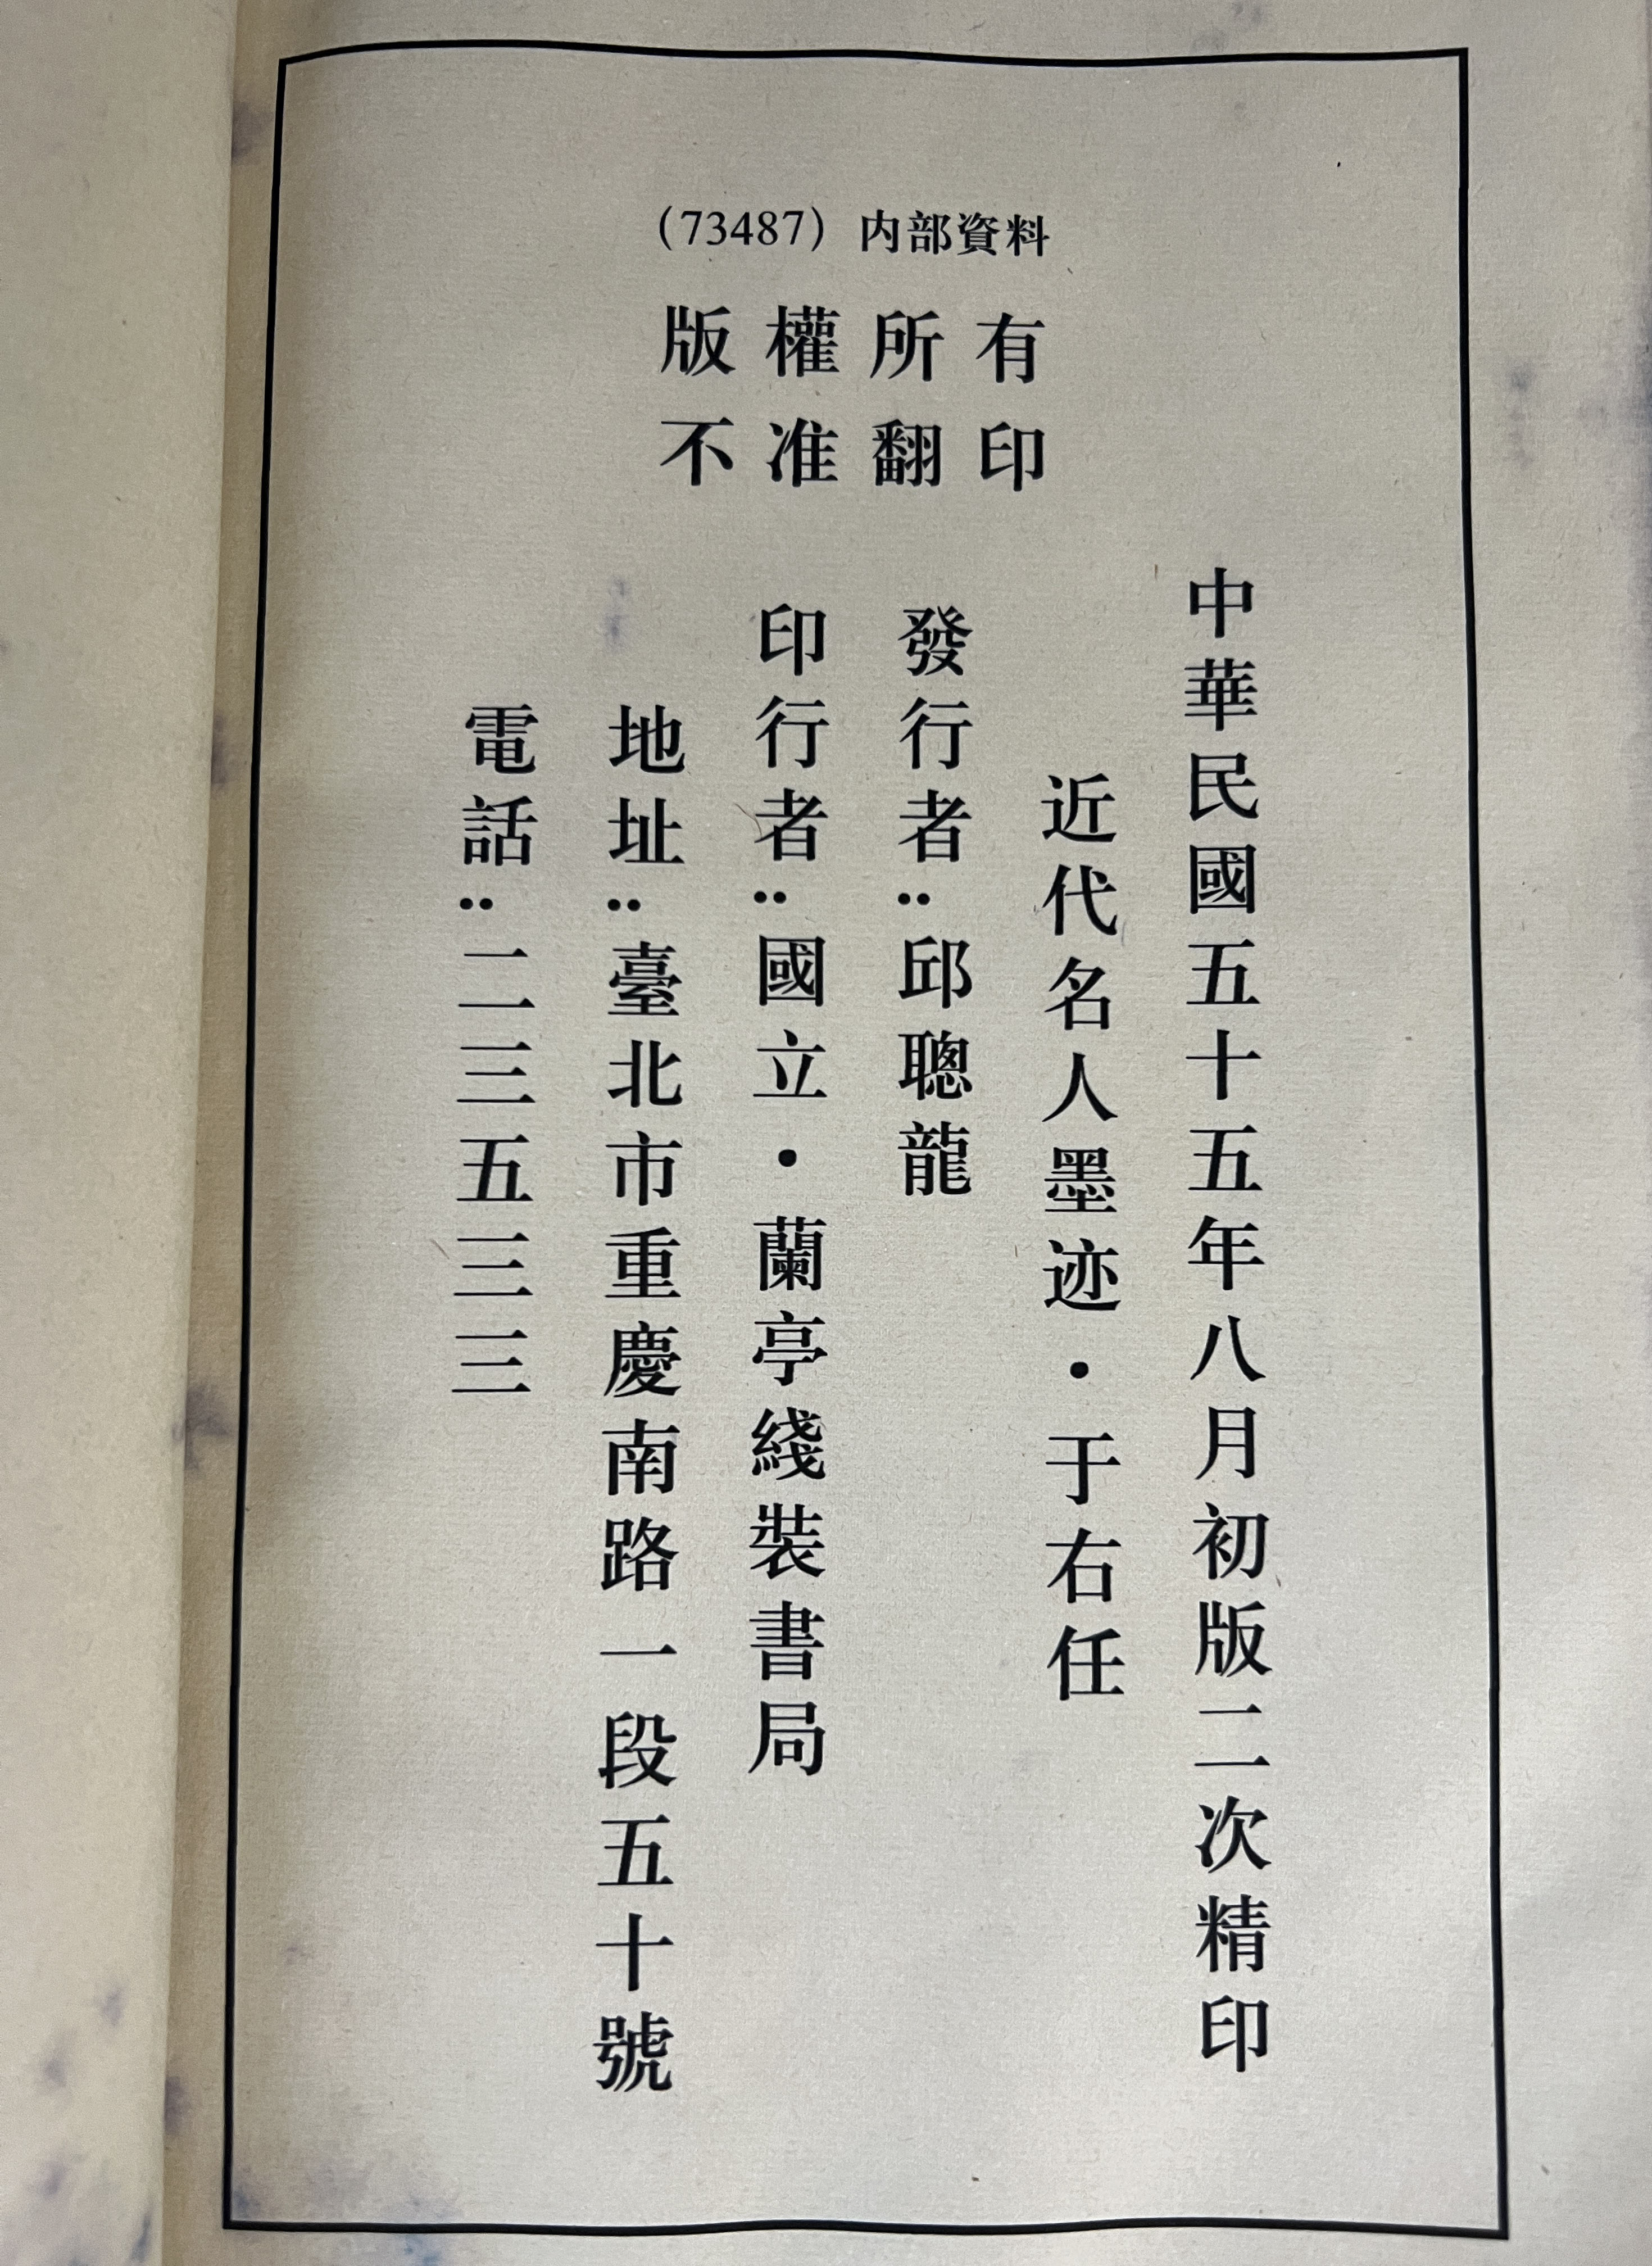 （73487）内部資料
版權所有
不准翻印
中華民國五十五年八月初版二次精印
近代名人墨迹・于右任
發行者：邱聰龍
印行者：國立・蘭亭綫裝書局
地址：臺北市重慶南路一段五十號
電話：二三五三三